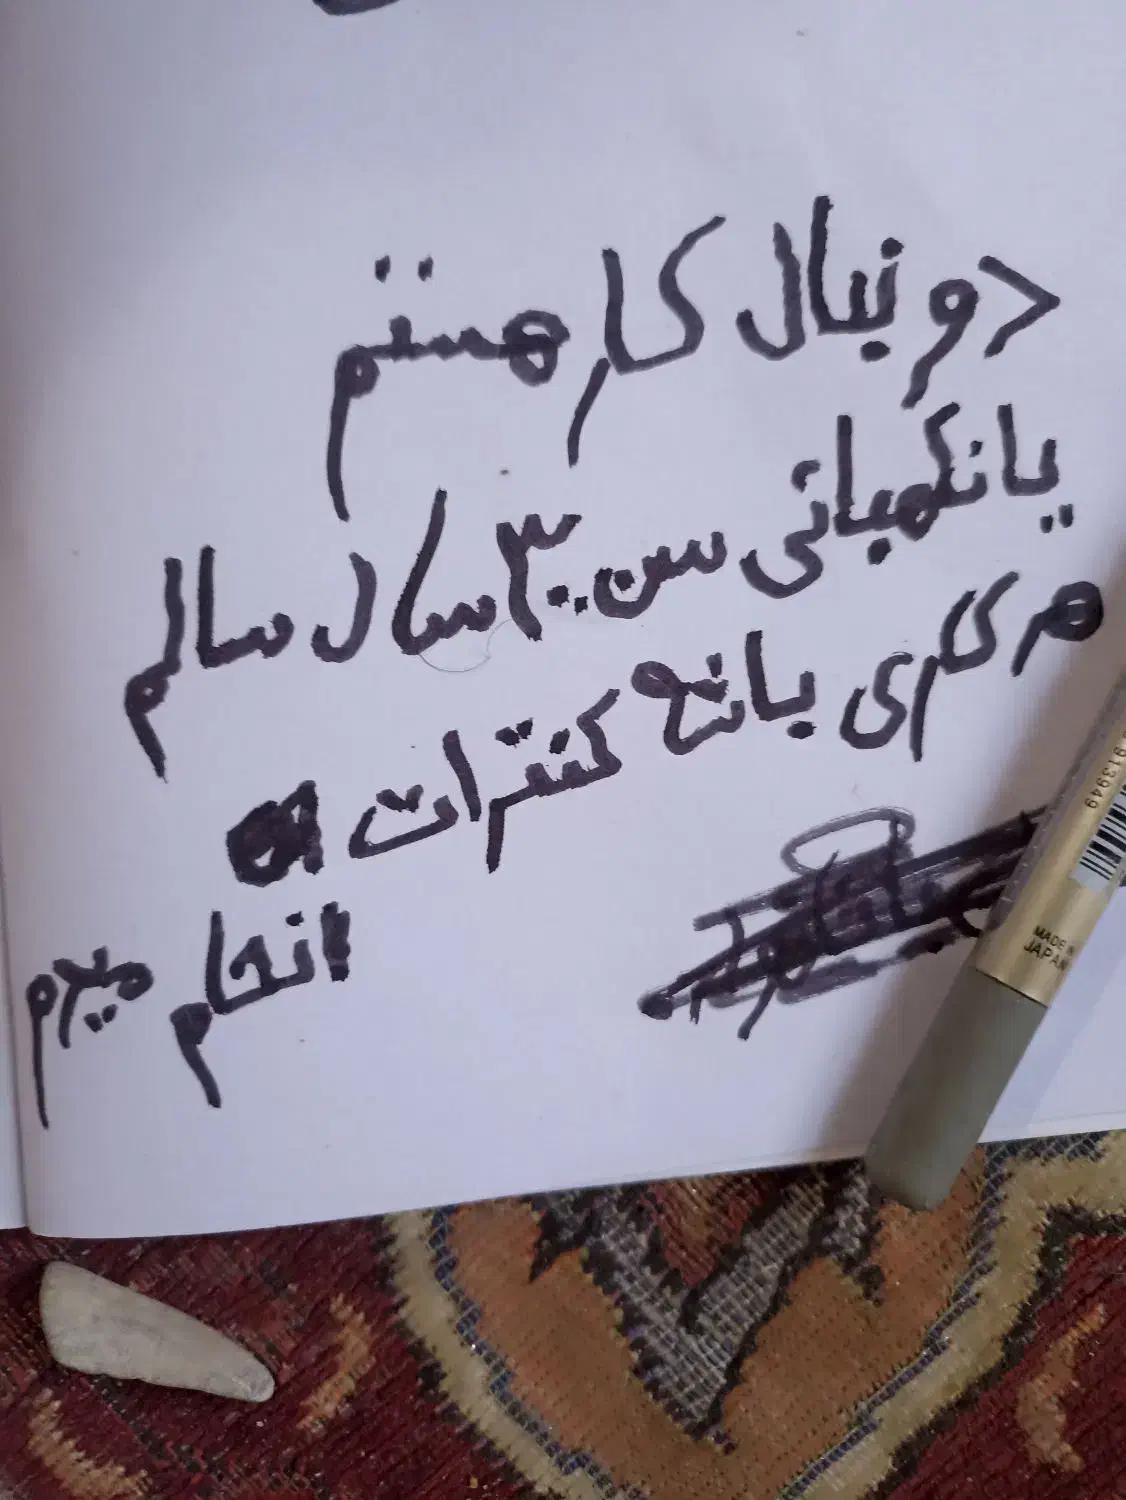 دو نبال کار هستم
یا نکهبانی سن ۳۰ سال سالم
هر کاری باشه کنترات
انجام میدم
913949
MADE IN
JAPAN